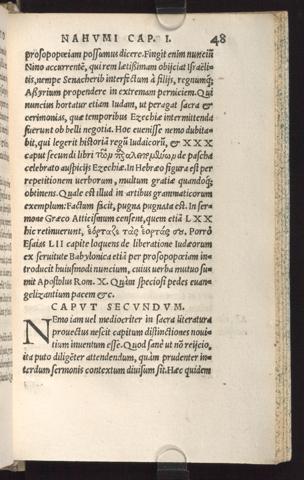 NAHVMI CAP. I. 48
prosopopœiam possumus dicere. Fingit enim nunciũ
Nino accurrentẽ, qui rem lætißimam obijciat Israëli-
tis, nempe Senacherib interfectum à filijs, regnumq;
Aßyrium propendere in extremam perniciem. Qui
nuncius hortatur etiam Iudam, ut peragat sacra &
cerimonias, quæ temporibus Ezechiæ intermittenda
fuerunt ob belli negotia. Hoc euenisse nemo dubita-
bit, qui legerit historiã regũ Iudaicorũ, & XXX
caput secundi libri de pascha
celebrato auspicijs Ezechiæ. In Hebræo figura est per
repetitionem uerborum, multum gratiæ quandoq;
obtinens. Quale est illud in artibus grammaticorum
exemplum: Factum facit, pugna pugnata est. In ser-
mone Græco Atticismum censent, quem etiã LXX
hic retinuerunt, ἑόρταζε τὰς ἑορτάς σου. Porrò
Esaias LII capite loquens de liberatione Iudæorum
ex seruitute Babylonica etiã per prosopopœiam in-
troducit huiusmodi nuncium, cuius uerba mutuo su-
mit Apostolus Rom. X. Quàm speciosi pedes euan-
gelizantium pacem &c.
CAPVT SECVNDVM.
NEmo iam uel mediocriter in sacra literatura
prouectus nescit capitum distinctiones noui-
tium inuentum esse. Quod sanè ut nõ reijcio,
ita puto diligẽter attendendum, quàm prudenter in-
terdum sermonis contextum diuisum sit. Hæc quidem